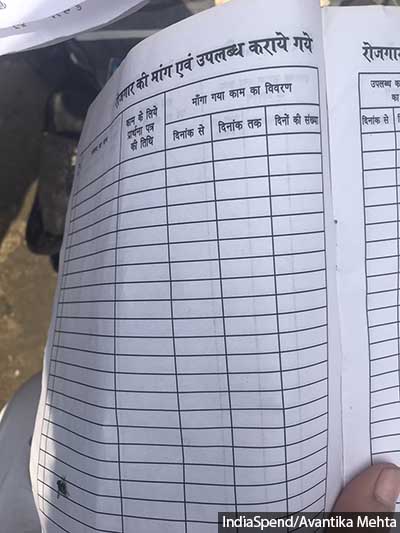 रोजगार की मांग एवं उपलब्ध कराये गये
काम के लिये
प्रार्थना पत्र
की तिथि
माँगा गया काम का विवरण
दिनांक से
दिनांक तक
दिनों की संख्या
उपलब्ध
दिनांक से
IndiaSpend/Avantika Mehta